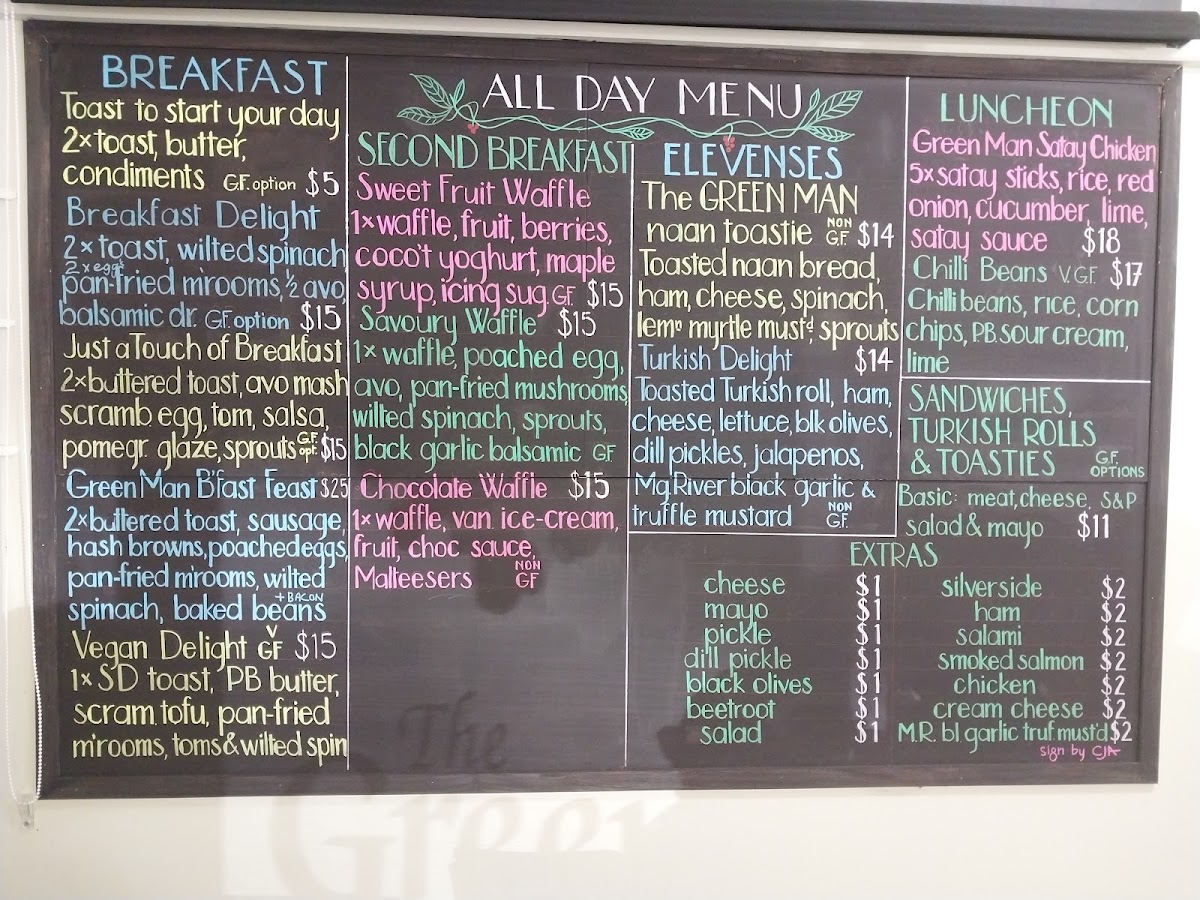 ALL DAY MENU
BREAKFAST
Toast to start your day
2x toast, butter,
condiments GF. option $5
Breakfast Delight
2x toast, wilted spinach
2x egg
pan-fried m'rooms, ½ avo,
balsamic dr. GF. option $15
Just a Touch of Breakfast
2x buttered toast, avo mash
scramb egg, tom, salsa,
pomegr. glaze, sprouts G.F. opt. $15
Green Man B'fast Feast $25
2x buttered toast, sausage,
hash browns, poached eggs,
pan-fried m'rooms, wilted
+ BACON
spinach, baked beans
Vegan Delight V GF $15
1x SD toast, PB butter,
scram. tofu, pan-fried
m'rooms, toms & wilted spin
SECOND BREAKFAST
Sweet Fruit Waffle
1x waffle, fruit, berries,
coco't yoghurt, maple
syrup, icing sug. GF. $15
Savoury Waffle $15
1x waffle, poached egg,
avo, pan-fried mushrooms,
wilted spinach, sprouts,
black garlic balsamic GF
Chocolate Waffle $15
1x waffle, van. ice-cream,
fruit, choc sauce,
Malteesers NON GF
ELEVENSES
The GREEN MAN
naan toastie NON GF $14
Toasted naan bread,
ham, cheese, spinach,
lemº myrtle mustᵈ, sprouts
Turkish Delight $14
Toasted Turkish roll, ham,
cheese, lettuce, blk olives,
dill pickles, jalapenos,
Mg. River black garlic &
truffle mustard NON GF.
LUNCHEON
Green Man Satay Chicken
5x satay sticks, rice, red
onion, cucumber, lime,
satay sauce $18
Chilli Beans V. G.F. $17
Chilli beans, rice, corn
chips, P.B. sour cream,
lime
SANDWICHES,
TURKISH ROLLS
& TOASTIES G.F. OPTIONS
Basic: meat, cheese, S&P
salad & mayo $11
EXTRAS
cheese $1
mayo $1
pickle $1
dill pickle $1
black olives $1
beetroot $1
salad $1
silverside $2
ham $2
salami $2
smoked salmon $2
chicken $2
cream cheese $2
M.R. bl garlic truf must'd $2
sign by CJA
The
Green